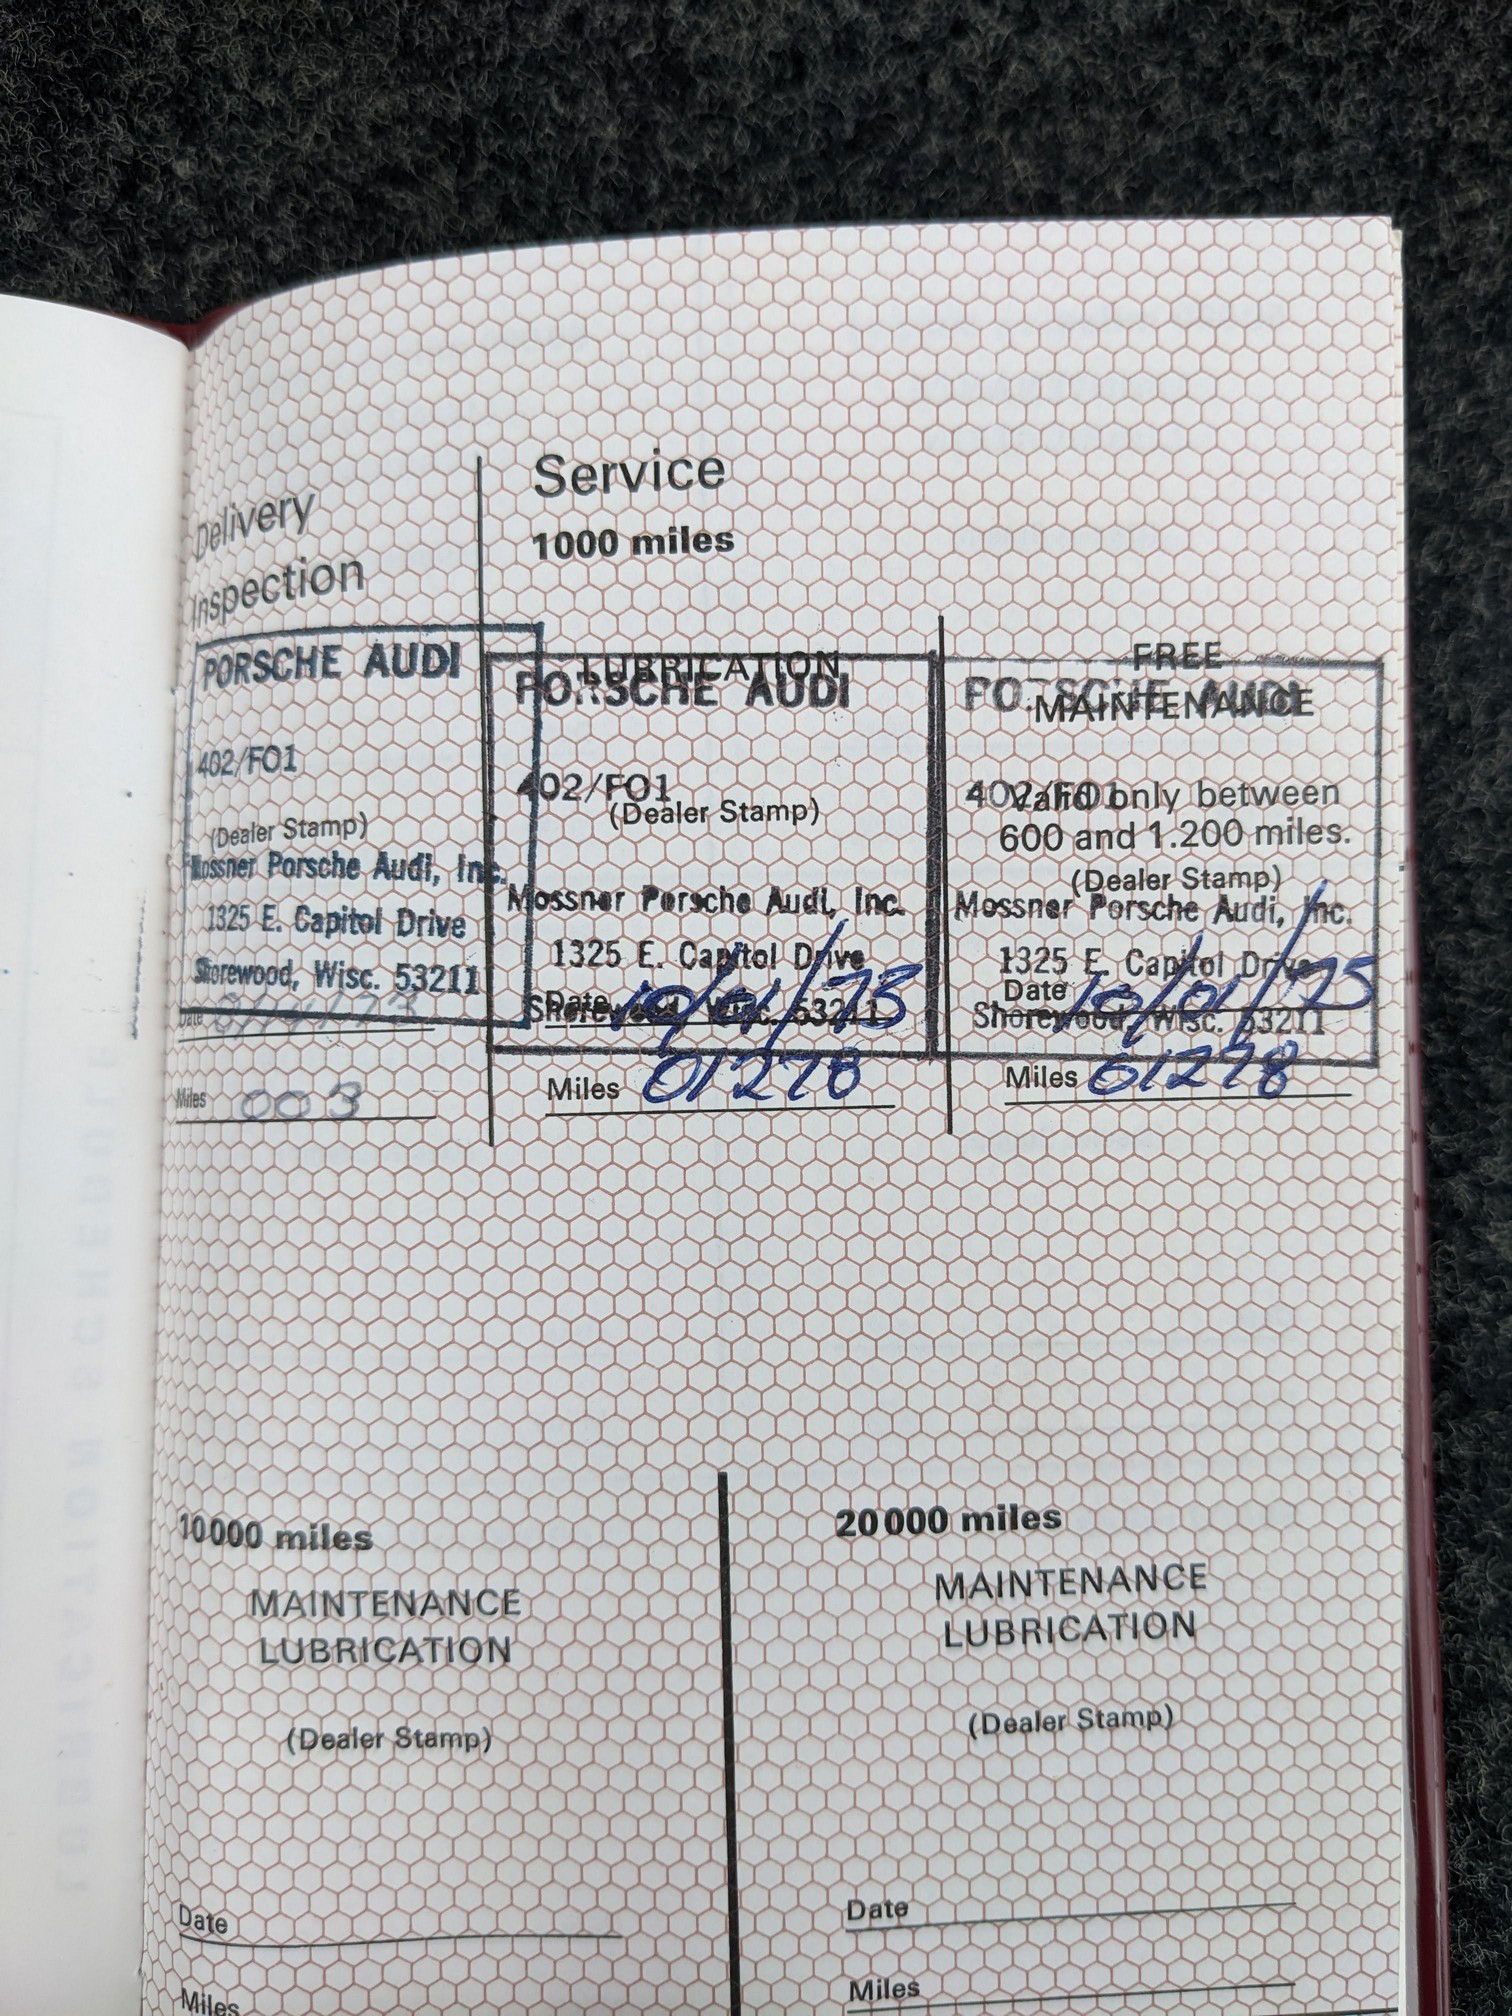 Delivery
Inspection
PORSCHE AUDI
402/FO1
(Dealer Stamp)
Mossner Porsche Audi, Inc.
1325 E. Capitol Drive
Shorewood, Wisc. 53211
Date
Miles 003
Service
1000 miles
LUBRICATION
PORSCHE AUDI
402/FO1
(Dealer Stamp)
Mossner Porsche Audi, Inc.
1325 E. Capitol Drive
Shorewood, Wisc. 53211
Date 10/01/73
Miles 01278
FREE
MAINTENANCE
PORSCHE AUDI
402/FO1
Valid only between
600 and 1.200 miles.
(Dealer Stamp)
Mossner Porsche Audi, Inc.
1325 E. Capitol Drive
Shorewood, Wisc. 53211
Date 10/01/75
Miles 01278
10000 miles
MAINTENANCE
LUBRICATION
(Dealer Stamp)
Date
Miles
20000 miles
MAINTENANCE
LUBRICATION
(Dealer Stamp)
Date
Miles